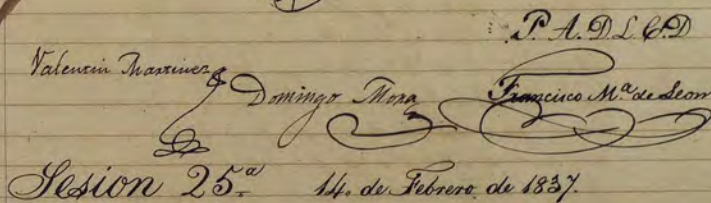 P. A. D L E. D
Valentin Martinez
Domingo Mora
Francisco M.ª de Leon
Sesion 25.ª 14. de Febrero de 1837.